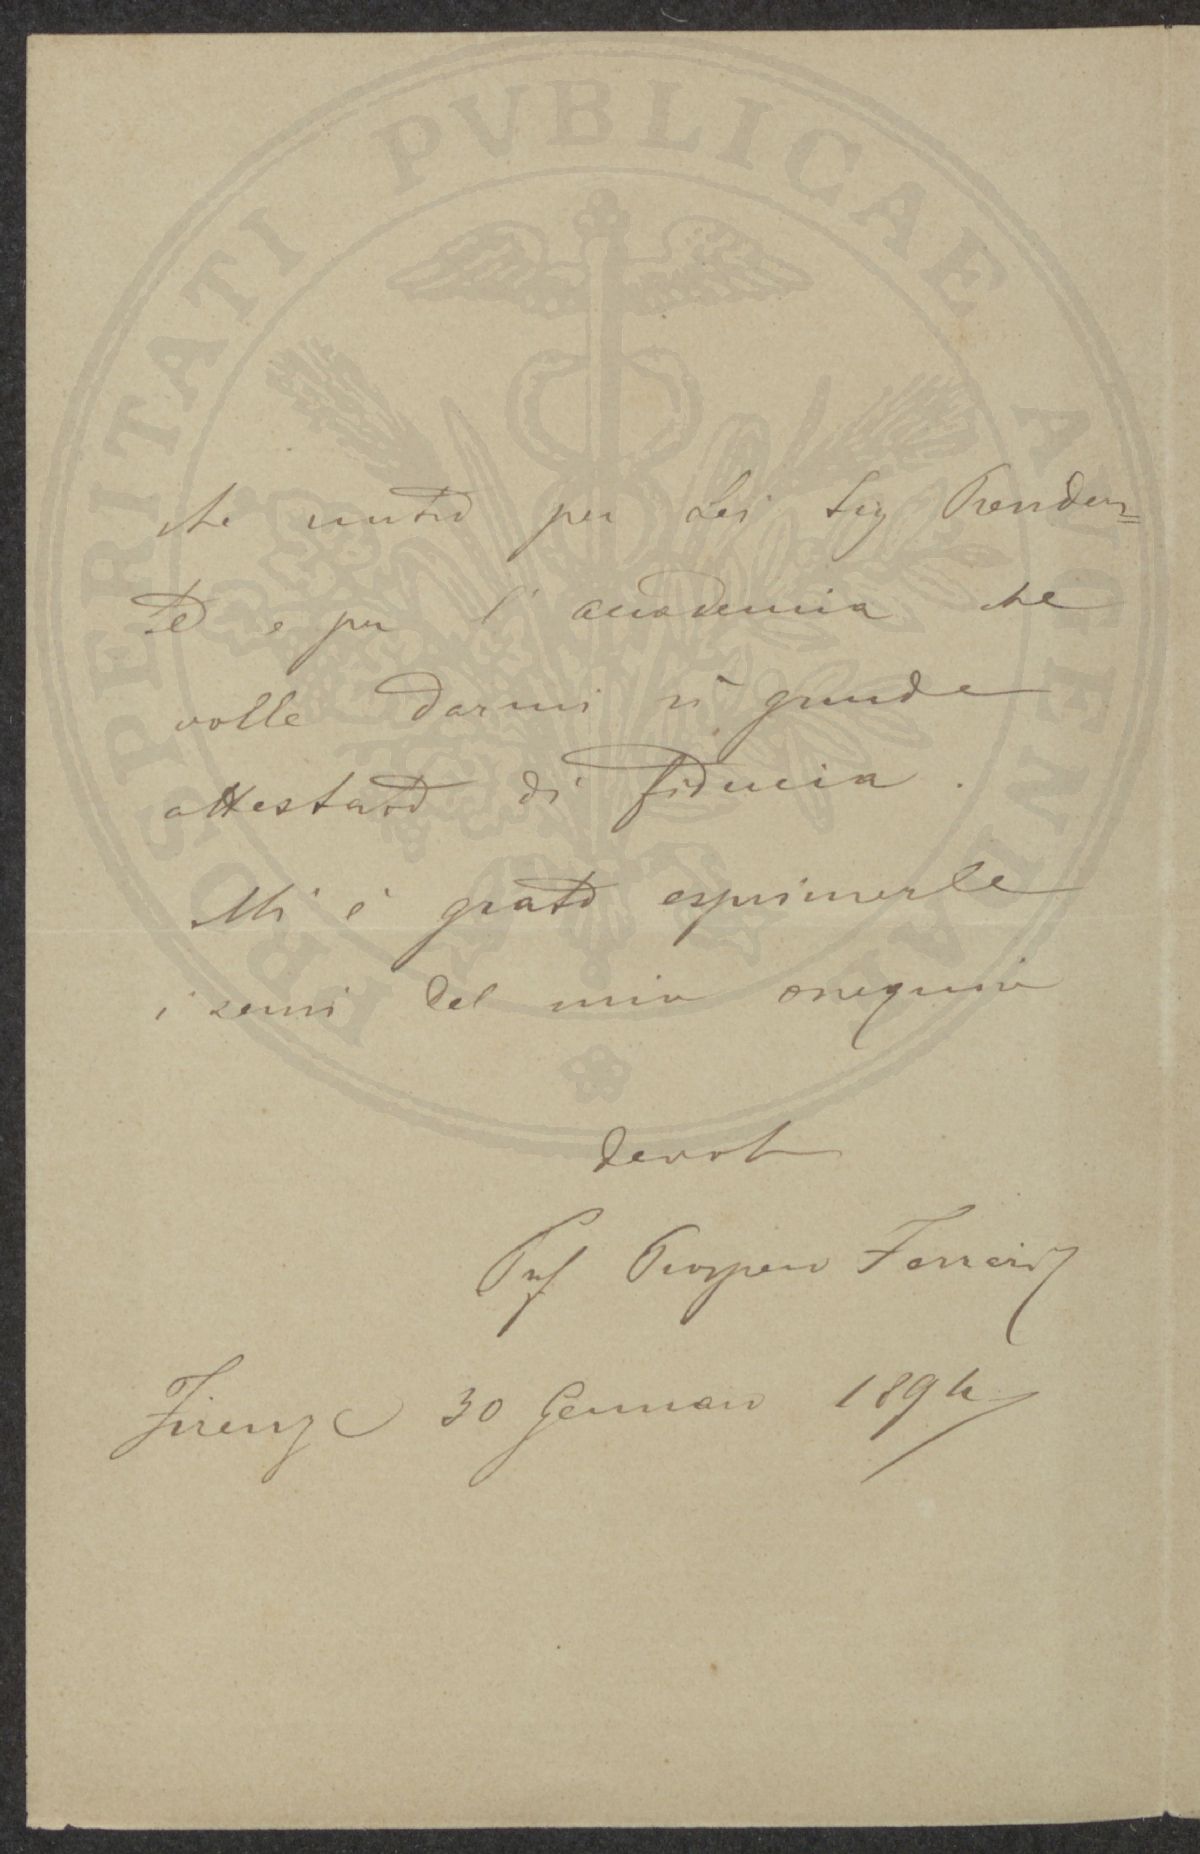 PROSPERITATI PVBLICAE AVGENDAE
che nutro per Lei Sig Presiden=
te e per l'accademia che
volle darmi sì grande
attestato di fiducia.
Mi è grato esprimerle
i sensi del mio ossequio
devot
Prof Prospero Ferrari
Firenze 30 Gennaio 1894